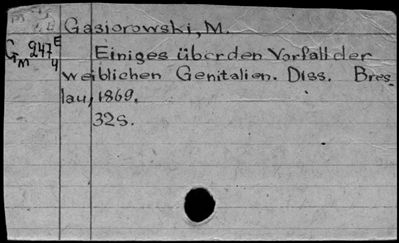 Gasiorowski, M.
Gm 247 E/4
Einiges über den Vorfall der
weiblichen Genitalien. Diss. Bres-
lau, 1869.
32S.